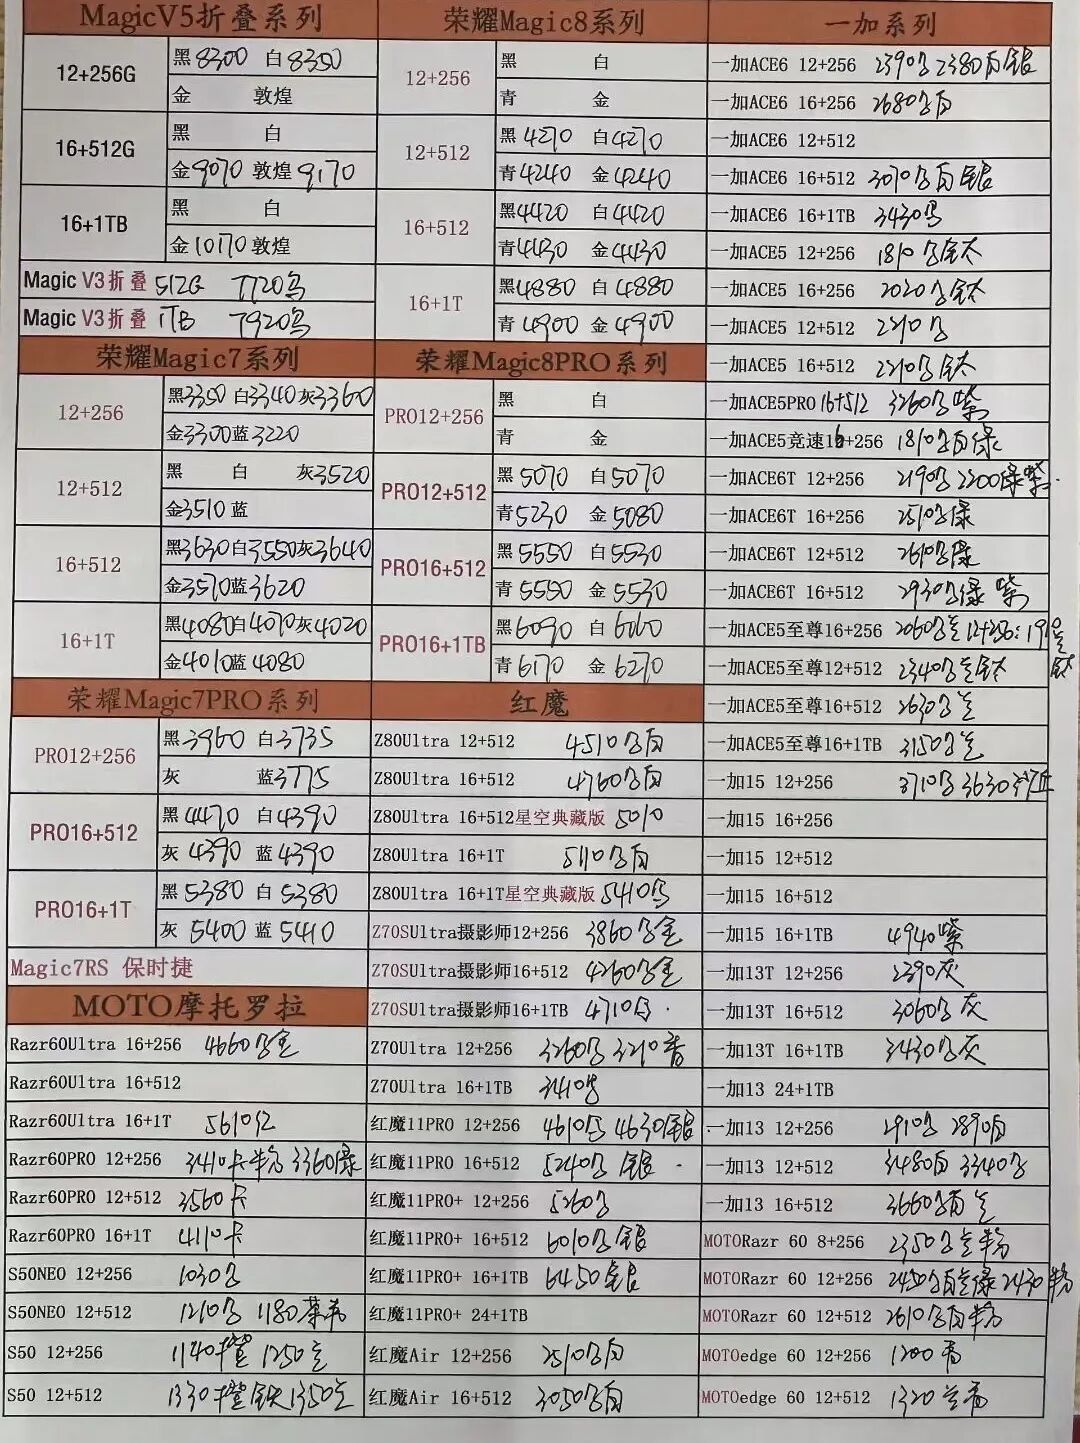 MagicV5折叠系列
12+256G
黑8300 白8350
金 敦煌
16+512G
黑 白
金9070 敦煌9170
16+1TB
黑 白
金10170敦煌
Magic V3折叠 512G 7720
Magic V3折叠 1TB 7920
荣耀Magic7系列
12+256
黑3350白3340灰3360
金3300蓝3220
12+512
黑 白 灰3520
金3510蓝
16+512
黑3630白3550灰3640
金3570蓝3620
16+1T
黑4080白4070灰4020
金4010蓝4080
荣耀Magic7PRO系列
PRO12+256
黑3960 白3735
灰 蓝3775
PRO16+512
黑4470 白4390
灰4390 蓝4390
PRO16+1T
黑5380 白5380
灰5400 蓝5410
Magic7RS 保时捷
MOTO摩托罗拉
Razr60Ultra 16+256 4660
Razr60Ultra 16+512
Razr60Ultra 16+1T 5610红
Razr60PRO 12+256 3410卡粉 3360绿
Razr60PRO 12+512 3560卡
Razr60PRO 16+1T 4110卡
S50NEO 12+256 1030
S50NEO 12+512 1210 1180
S50 12+256 1140 1250
S50 12+512 1330 1350
荣耀Magic8系列
12+256
黑 白
青 金
12+512
黑4270 白4270
青4240 金4240
16+512
黑4420 白4420
青4430 金4430
16+1T
黑4880 白4880
青4900 金4900
荣耀Magic8PRO系列
PRO12+256
黑 白
青 金
PRO12+512
黑5070 白5070
青5230 金5080
PRO16+512
黑5550 白5530
青5550 金5530
PRO16+1TB
黑6090 白6060
青6170 金6270
红魔
Z80Ultra 12+512 4510
Z80Ultra 16+512 4760
Z80Ultra 16+512星空典藏版 5010
Z80Ultra 16+1T 5110
Z80Ultra 16+1T星空典藏版 5410
Z70SUltra摄影师12+256 3860
Z70SUltra摄影师16+512 4260
Z70SUltra摄影师16+1TB 4710
Z70Ultra 12+256 3260 3210
Z70Ultra 16+1TB 3410
红魔11PRO 12+256 4610 4630银
红魔11PRO 16+512 5240 银
红魔11PRO+ 12+256 5260
红魔11PRO+ 16+512 6010 银
红魔11PRO+ 16+1TB 6450 银
红魔11PRO+ 24+1TB
红魔Air 12+256 2510
红魔Air 16+512 3050
一加系列
一加ACE6 12+256 2390 2380白银
一加ACE6 16+256 2680
一加ACE6 12+512
一加ACE6 16+512 3070 白银
一加ACE6 16+1TB 3430
一加ACE5 12+256 1810 钛
一加ACE5 16+256 2020 钛
一加ACE5 12+512 2210
一加ACE5 16+512 2210 钛
一加ACE5PRO 16+512 3260 紫
一加ACE5竞速16+256 1810 白绿
一加ACE6T 12+256 2190 2200绿紫
一加ACE6T 16+256 2510 绿
一加ACE6T 12+512 2610 绿
一加ACE6T 16+512 2930 绿 紫
一加ACE5至尊16+256 2060 12+256:
一加ACE5至尊12+512 2340 钛
一加ACE5至尊16+512 2630
一加ACE5至尊16+1TB 3150
一加15 12+256 3710 3630
一加15 16+256
一加15 12+512
一加15 16+512
一加15 16+1TB 4940紫
一加13T 12+256 2390灰
一加13T 16+512 3060灰
一加13T 16+1TB 3430 灰
一加13 24+1TB
一加13 12+256 2910 2890白
一加13 12+512 3480白 3340
一加13 16+512 3660
MOTORazr 60 8+256 2350 粉
MOTORazr 60 12+256 2450 绿 2430粉
MOTORazr 60 12+512 2610 白粉
MOTOedge 60 12+256 1200
MOTOedge 60 12+512 1320